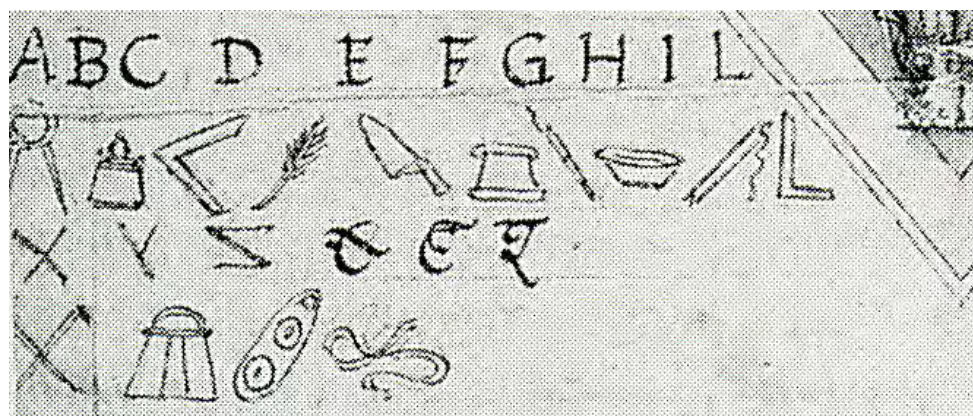 A B C D E F G H I L
X Y Z &